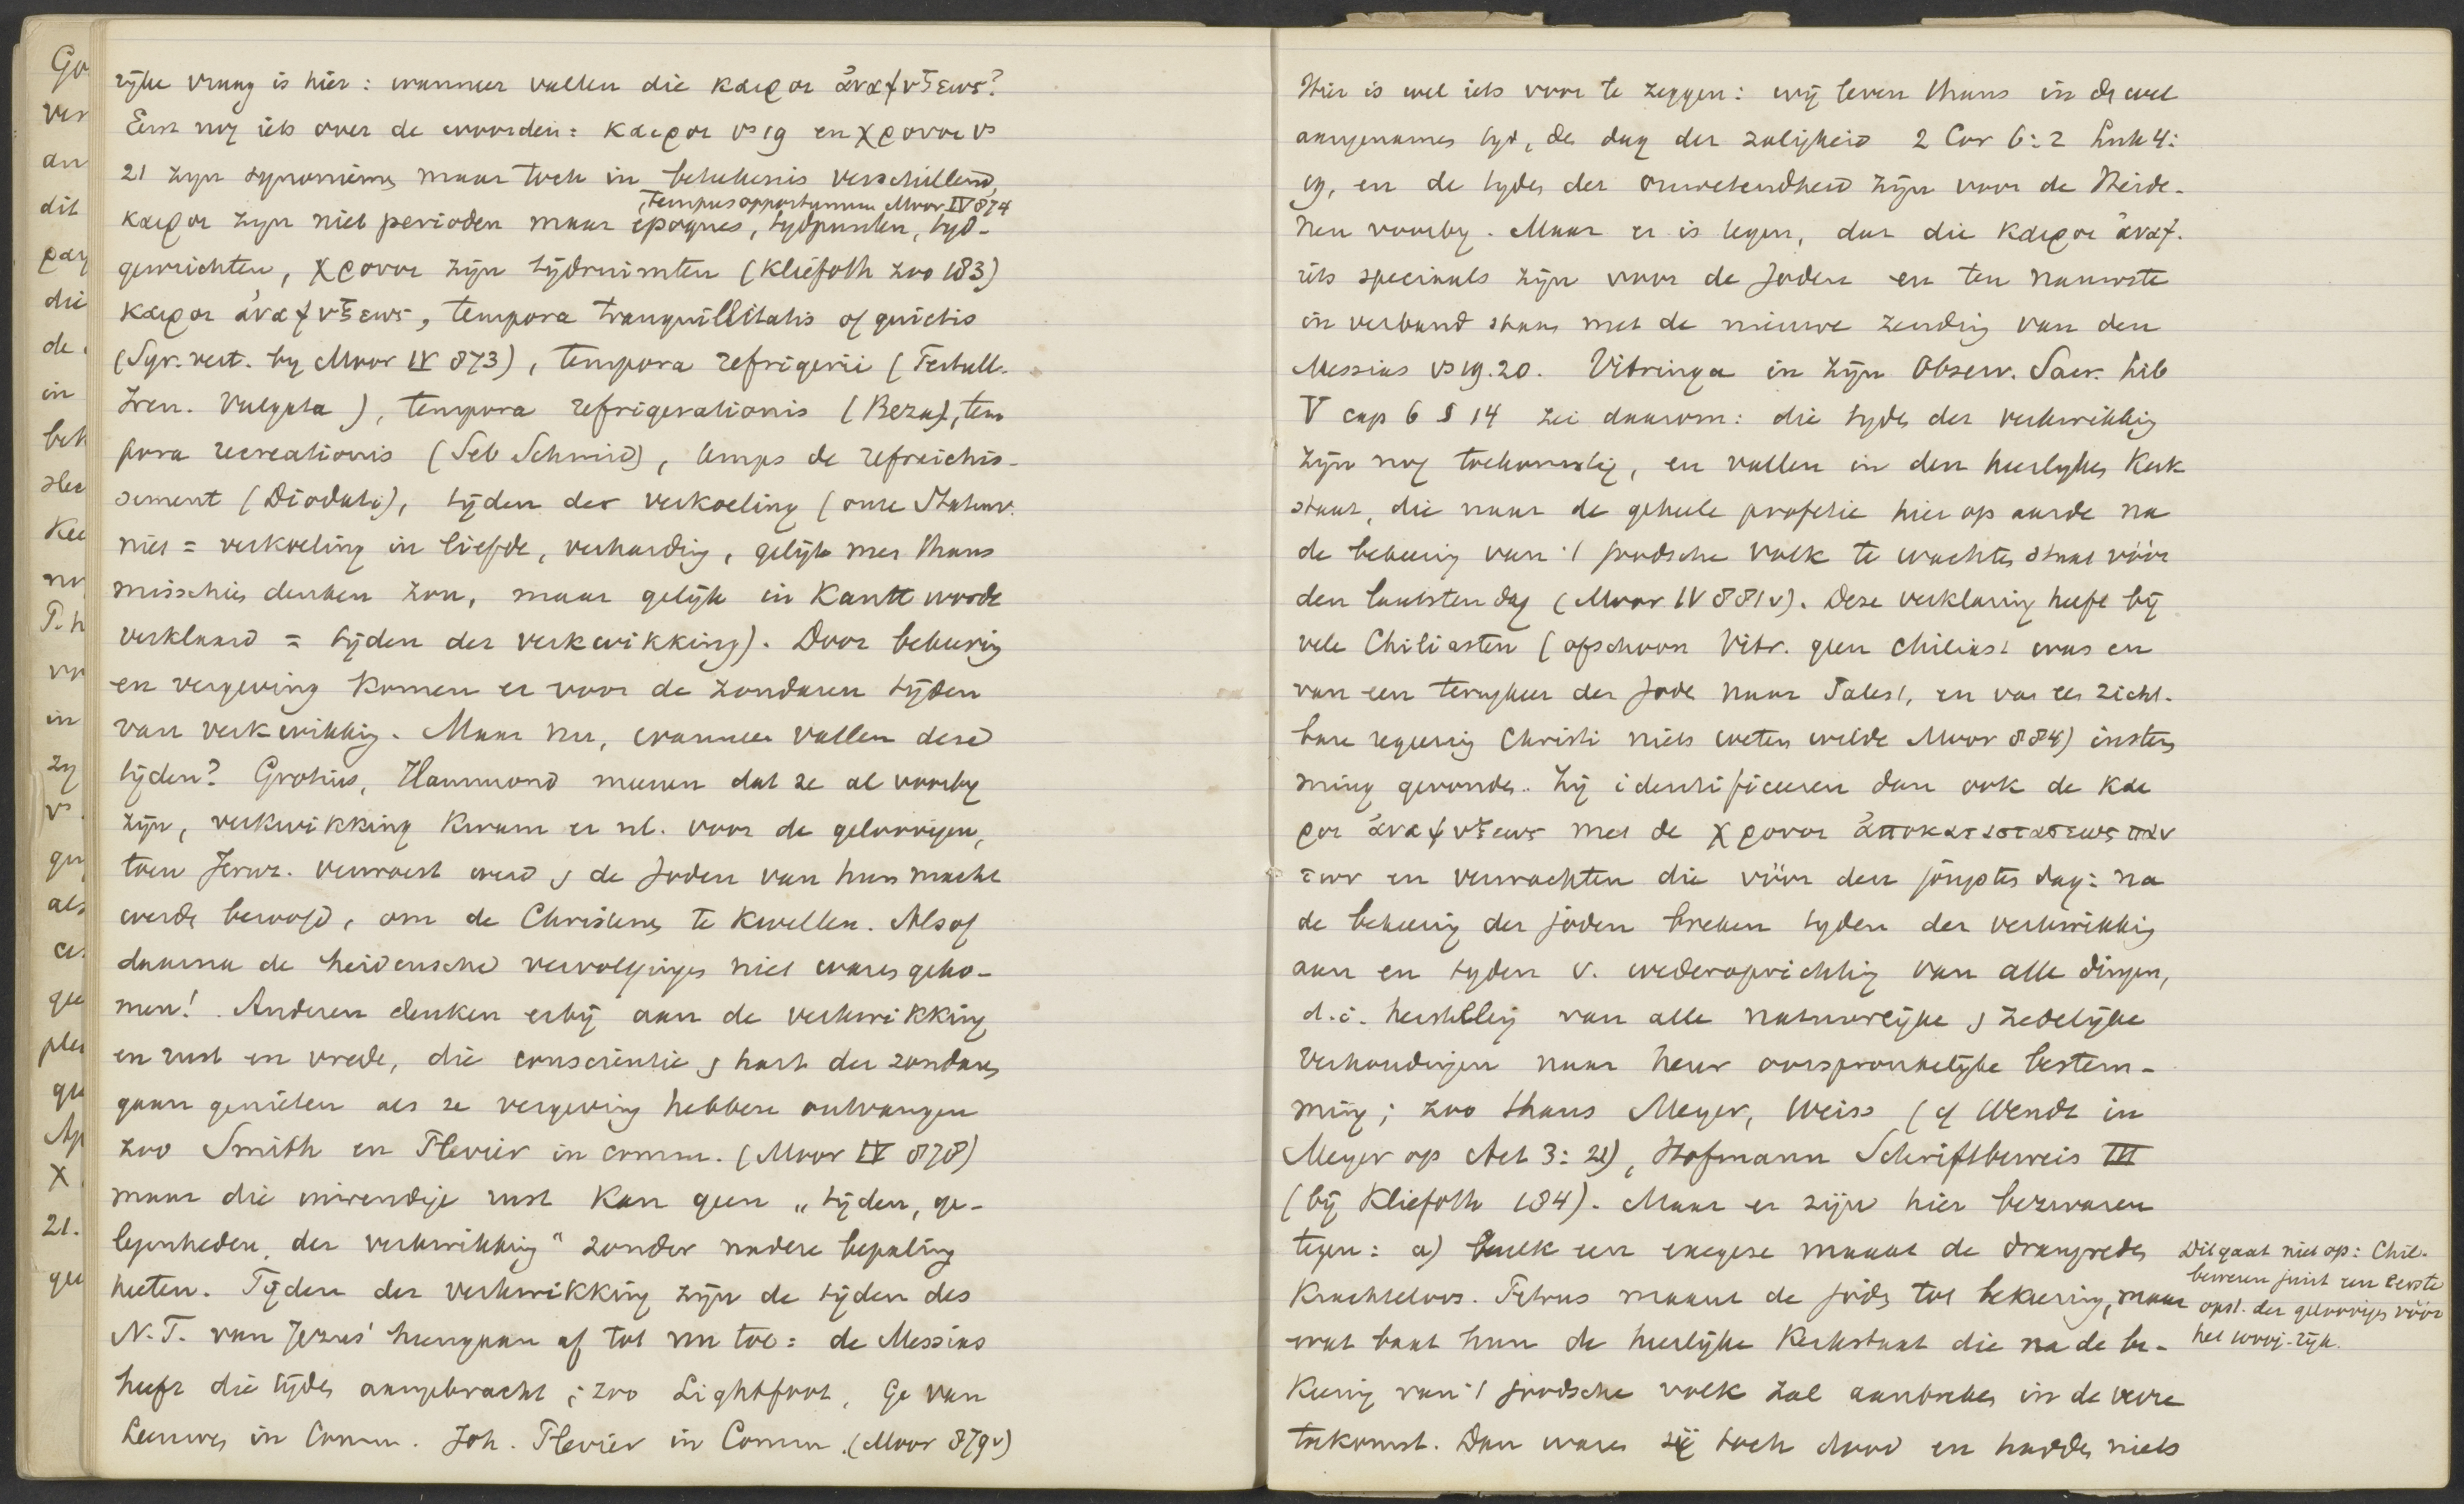 rijke vraag is hier: wanneer vallen die καιροι ἀναψυξεως?
Eerst nog iets over de woorden: καιροι vs 19 en χρονοι vs
21 zijn synoniemen maar toch in beteekenis verschillend,
καιροι zijn niet perioden maar epoques, tydpunten, tyd-
, tempus opportunum Moor IV 874
gewrichten, χρονοι zijn tijdruimten (Kliefoth zoo 183)
καιροι ἀναψυξεως, tempora tranquillitatis of quietis
(Syr. vert. by Moor IV 873), tempora refrigerii (Tertull.
Iren. Vulgata), tempora refrigerationis (Beza), tem
pora recreationis (Seb Schmid), temps de refreichis-
sement (Diodati), tijden der verkoeling (onze Statenv.
niet = verkoeling in liefde, verharding, gelijk men thans
misschien denken zou, maar gelijk in Kantt worde
verklaard = tijden der verkwikking). Door bekeering
en vergeving komen er voor de zondaren tijden
van verkwikkig. Maar nu, wanneer vallen deze
tijden? Grotius, Hammond meenen dat ze al voorby
zijn, verkwikking kwam er nl. voor de geloovigen,
toen Jeruz. verwoest werd & de Joden van hun macht
werde beroofd, om de Christenen te kwellen. Alsof
daarna de heidensche vervolgingen niet waren geko-
men! Anderen denken erbij aan de verkwikking
en rust en vrede, die conscientie & hart der zondaren
gaan genieten als ze vergeving hebben ontvangen
zoo Smith en Plevier in comm. (Moor IV 878)
maar die inwendige rust kan geen „tijden, ge-
legenheden, der verkwikking" zonder nadere bepaling
heeten. Tijden der verkwikking zijn de tijden des
N.T. van Jezus' heengaan af tot nu toe: de Messias
heeft die tijden aangebracht; zoo Lightfoot, Ge van
Leeuwen in Comm. Joh. Plevier in Comm. (Moor 879v)
Hier is wel iets voor te zeggen: wij leven thans in de wel
aangename tyd, de dag der zaligheid 2 Cor 6:2 Luk 4:
19, en de tyden der onwetendheid zijn voor de Heide-
nen voorby. Maar er is tegen, dat die καιροι ἀναψ.
iets speciaals zijn voor de Joden en ten nauwste
in verband staan met de nieuwe zending van den
Messias vs 19.20. Vitringa in zijn Observ. Sacr. Lib
V cap 6 § 14 zei daarom: die tyden der verkwikkig
zijn nog toekomstig, en vallen in den heerlyken Kerk
staat, die naar de geheele profetie hier op aarde na
de bekeering van 't joodsche volk te wachten staat vóór
den laatsten dag (Moor IV 881v). Deze verklaring heeft bij
vele Chiliasten (ofschoon Vitr. geen chiliast was en
van een terugkeer der Joden naar Palest, en van een zicht-
bare regeering Christi niets weten wilde Moor 884) instem
ming gevonden. Zij identificeeren dan ook de και
ροι ἀναψυξεως met de χρονοι ἀποκαταστασεως παν
των en verwachten die vóór den jongsten dag: na
de bekeering der joden breken tyden der verkwikkig
aan en tyden v. wederoprichtig van alle dingen,
d.i. herstelling van alle natuurlijke & zedelijke
verhoudingen naar heur oorspronkelijke bestem-
ming; zoo thans Meyer, Weiss (cf Wendt in
Meyer op Act 3:21), Hofmann Schriftbeweis III
(bij Kliefoth 184). Maar er zijn hier bezwaren
tegen: a) zulk een exegese maakt de drangreden
krachteloos. Petrus maant de joden tot bekeering, maar
wat baat hun de heerlijke Kerkstaat die na de be-
keering van 't joodsche volk zal aanbreken in de verre
toekomst. Dan waren zij toch dood en hadden niets
Dit gaat niet op: Chil.
beweren juist een eerste
opst. der geloovigen vóór
het 1000j. rijk.